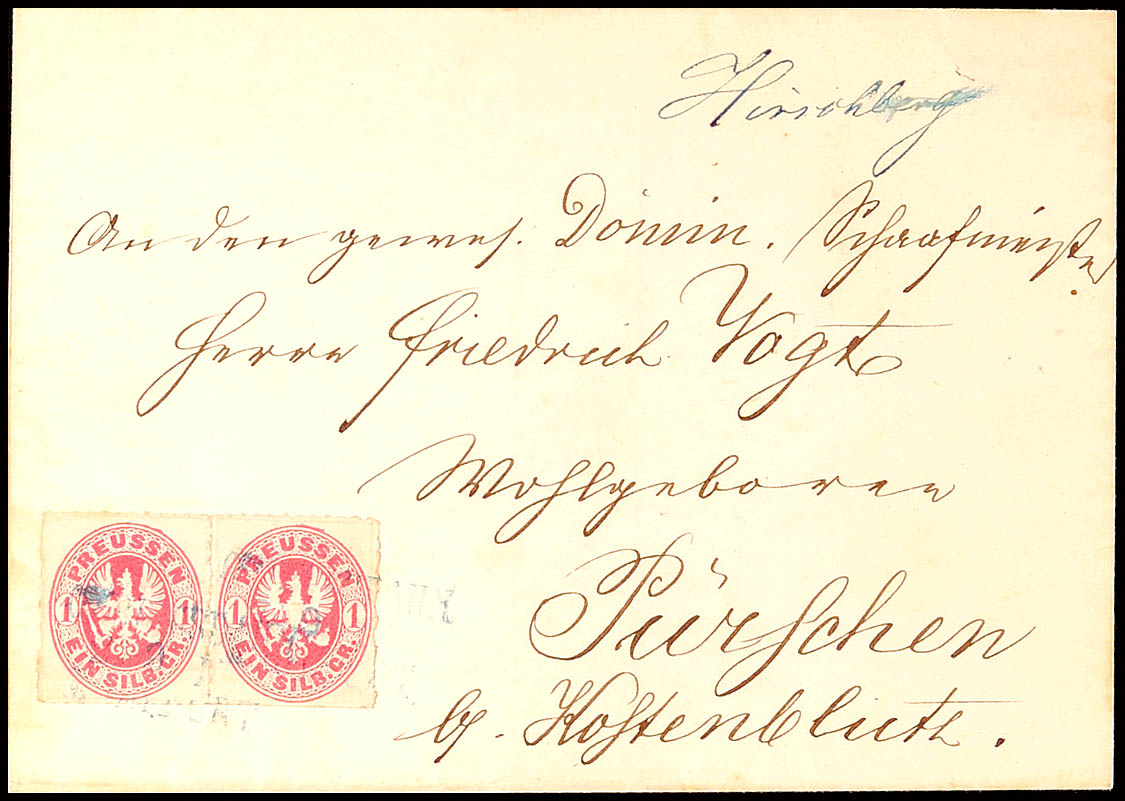 Hirschberg
An den gewes. Domin. Schaafmeister
Herrn Friedrich Vogt
Wohlgeboren
Pürschen
b/. Kostenbluth.
PREUSSEN
1 1
EIN SILB. GR.
PREUSSEN
1 1
EIN SILB. GR.